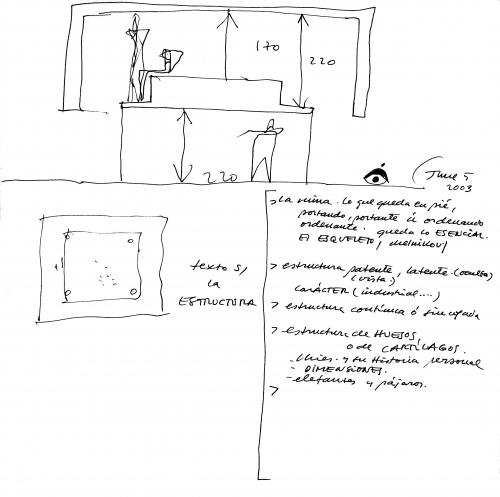 170
220
220
June 5
2003
> La ruina. Lo que queda en pié,
portando, portante ú ordenando
ordenante. queda lo ESENCIAL.
El ESQUELETO, melnikov/
> estructura patente, latente. (oculta)
(vista)
CARÁCTER (industrial....)
> estructura continua ó
> estructura de HUESOS,
o de CARTÍLAGOS.
- y su Historia personal
- DIMENSIONES.
- elefantes y pájaros.
>
texto s/
la
ESTRUCTURA